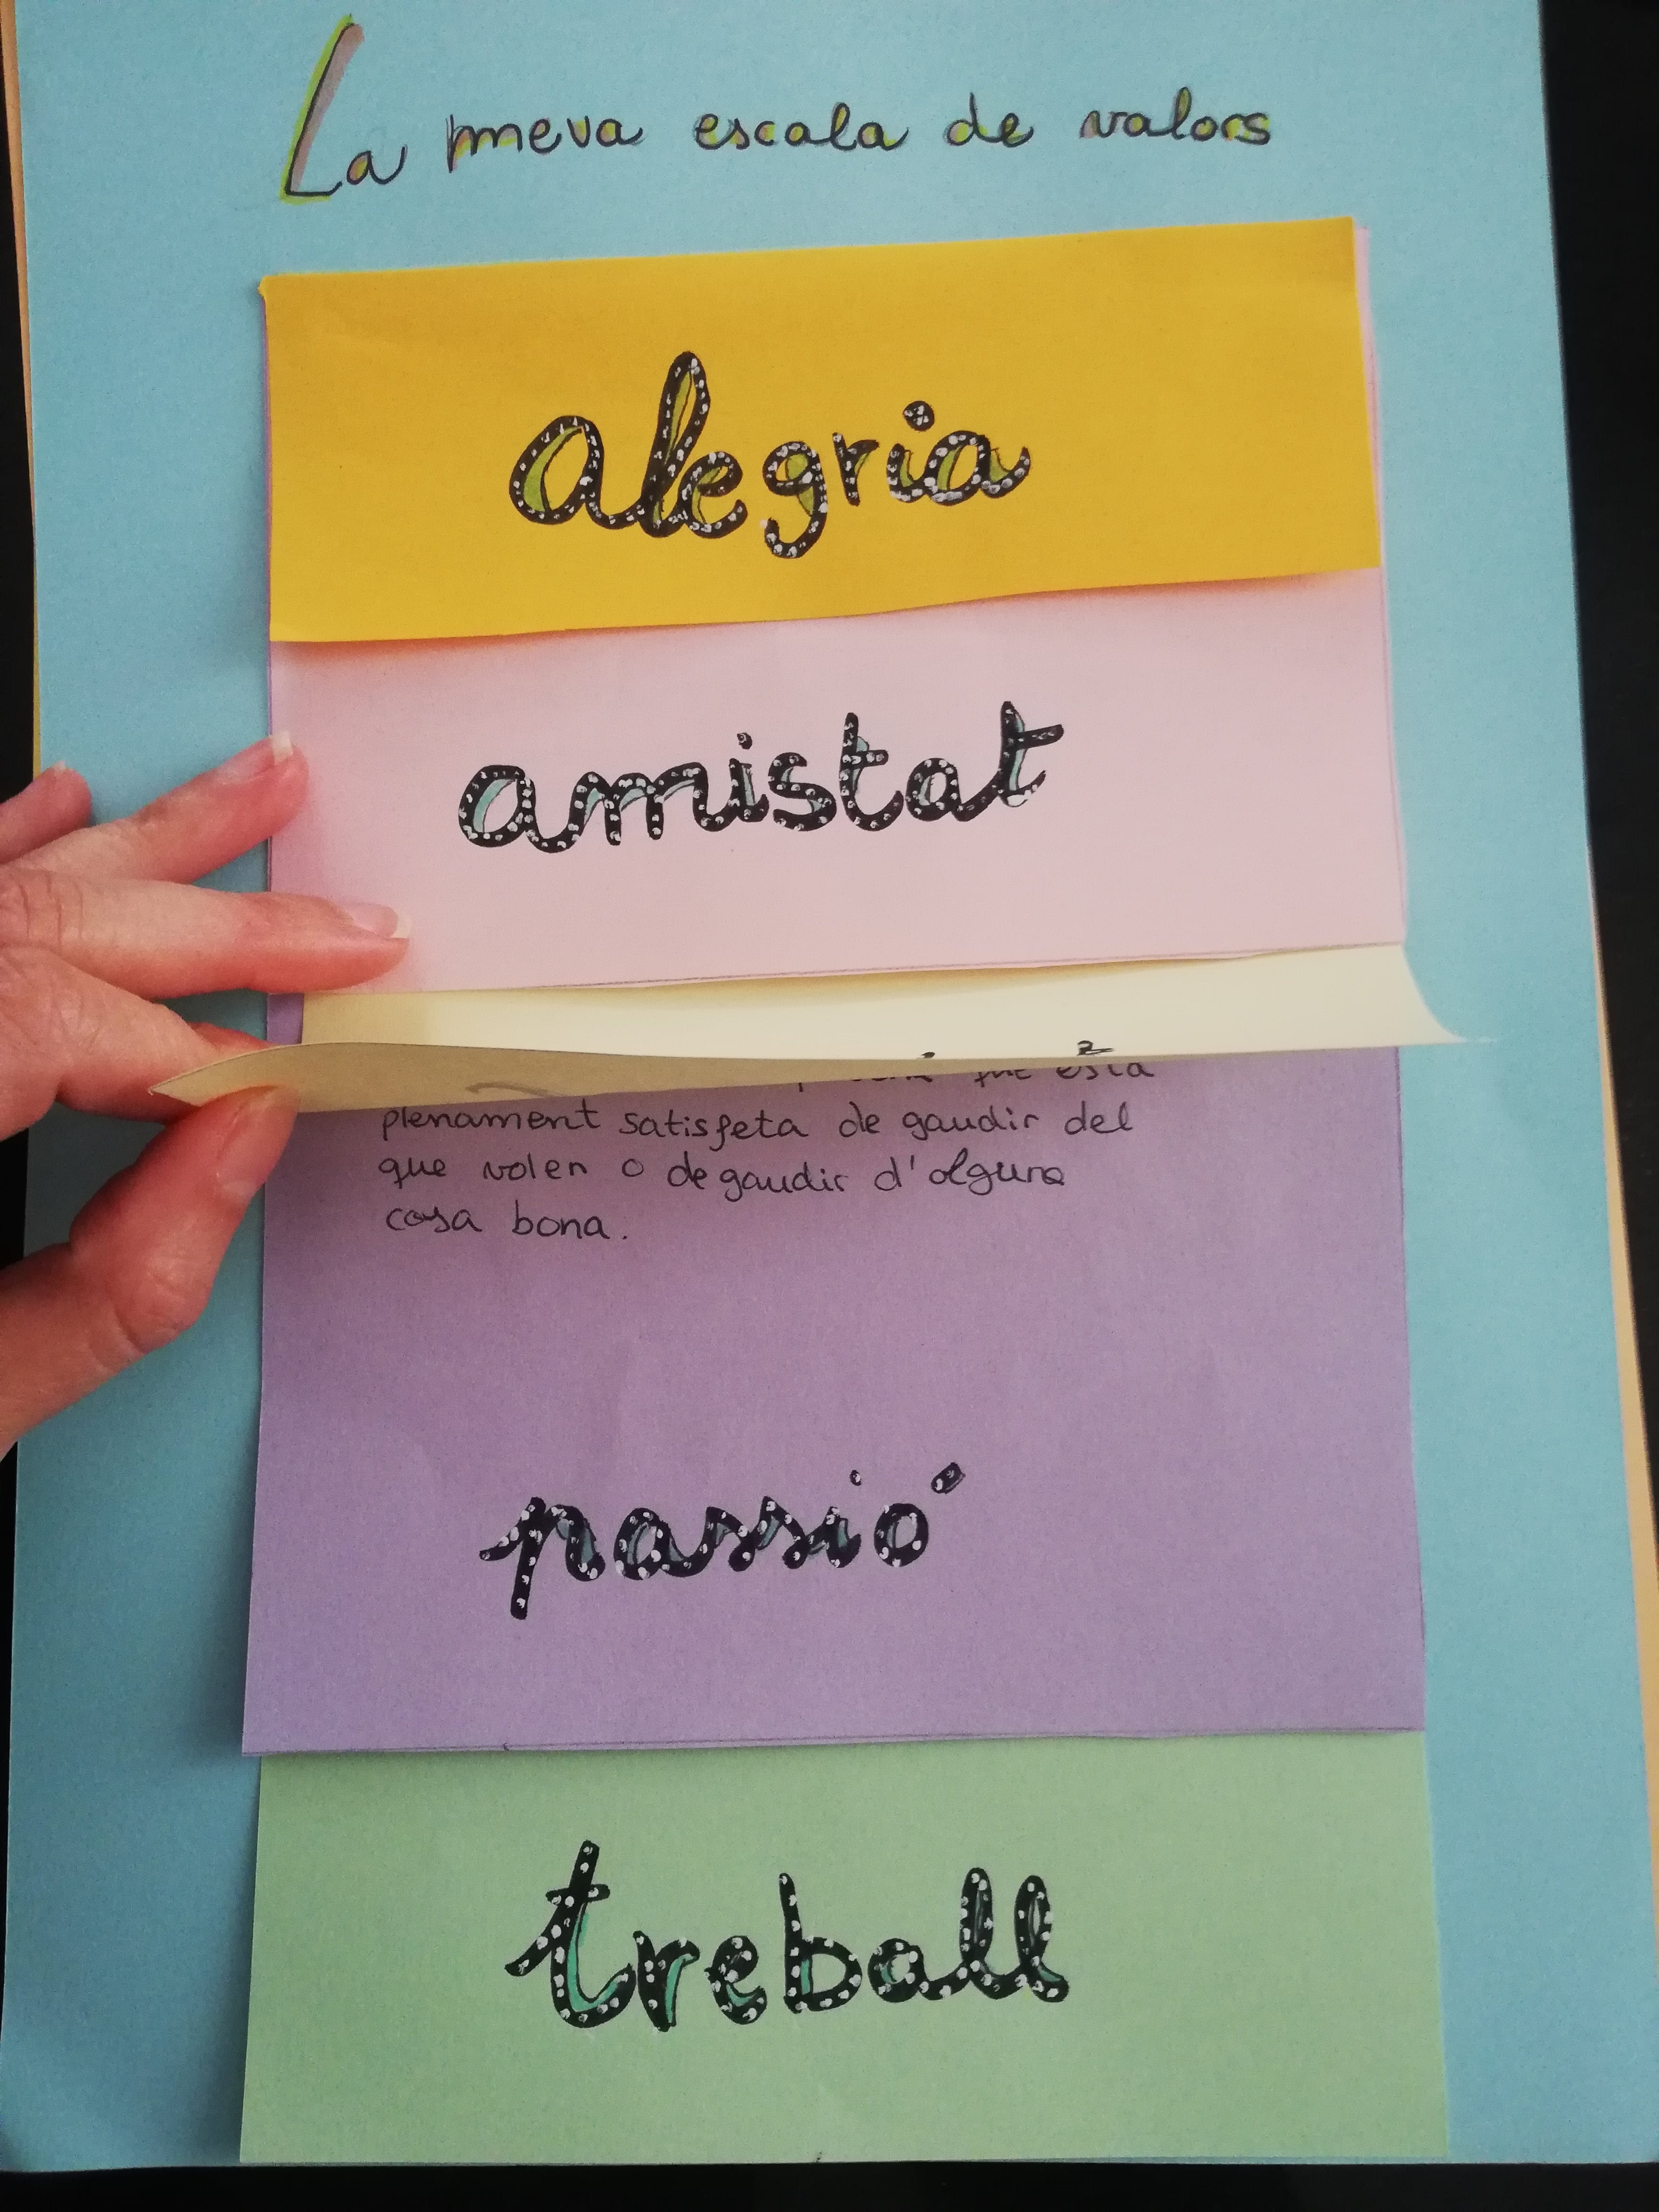 La meva escala de valors
alegria
amistat
que està
plenament satisfeta de gaudir del
que volen o de gaudir d'alguna
cosa bona.
passió
treball